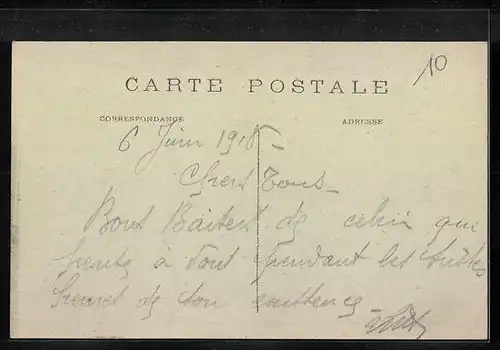 10
CARTE POSTALE
CORRESPONDANCE
ADRESSE
6 Juin 1915 -
Chers Tous -
Bons Baisers de celui qui
pense à Vous pendant les tristes
de son existence -